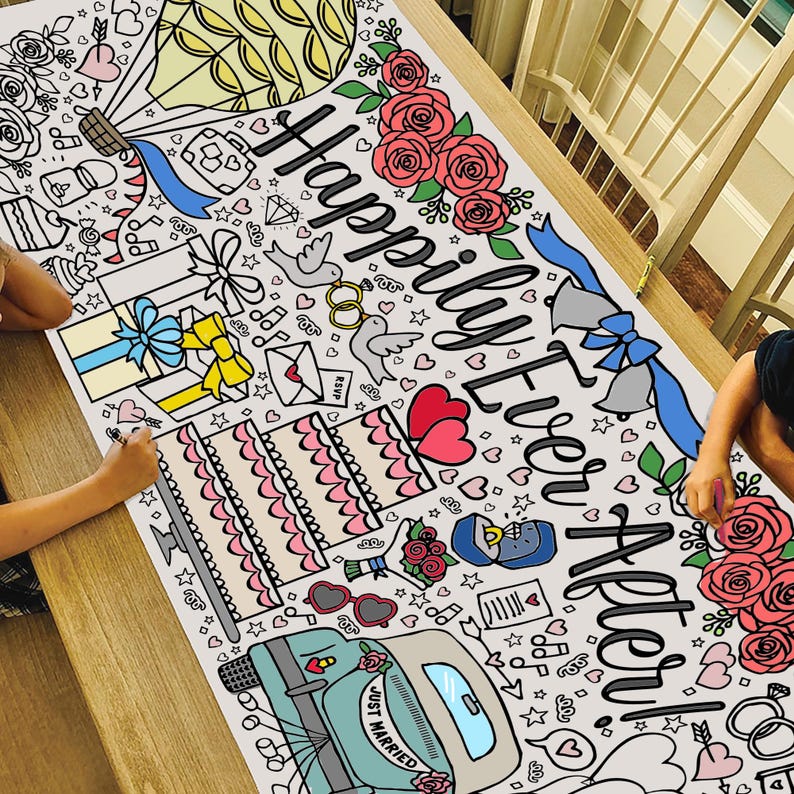 Happily Ever After!
RSVP
JUST MARRIED